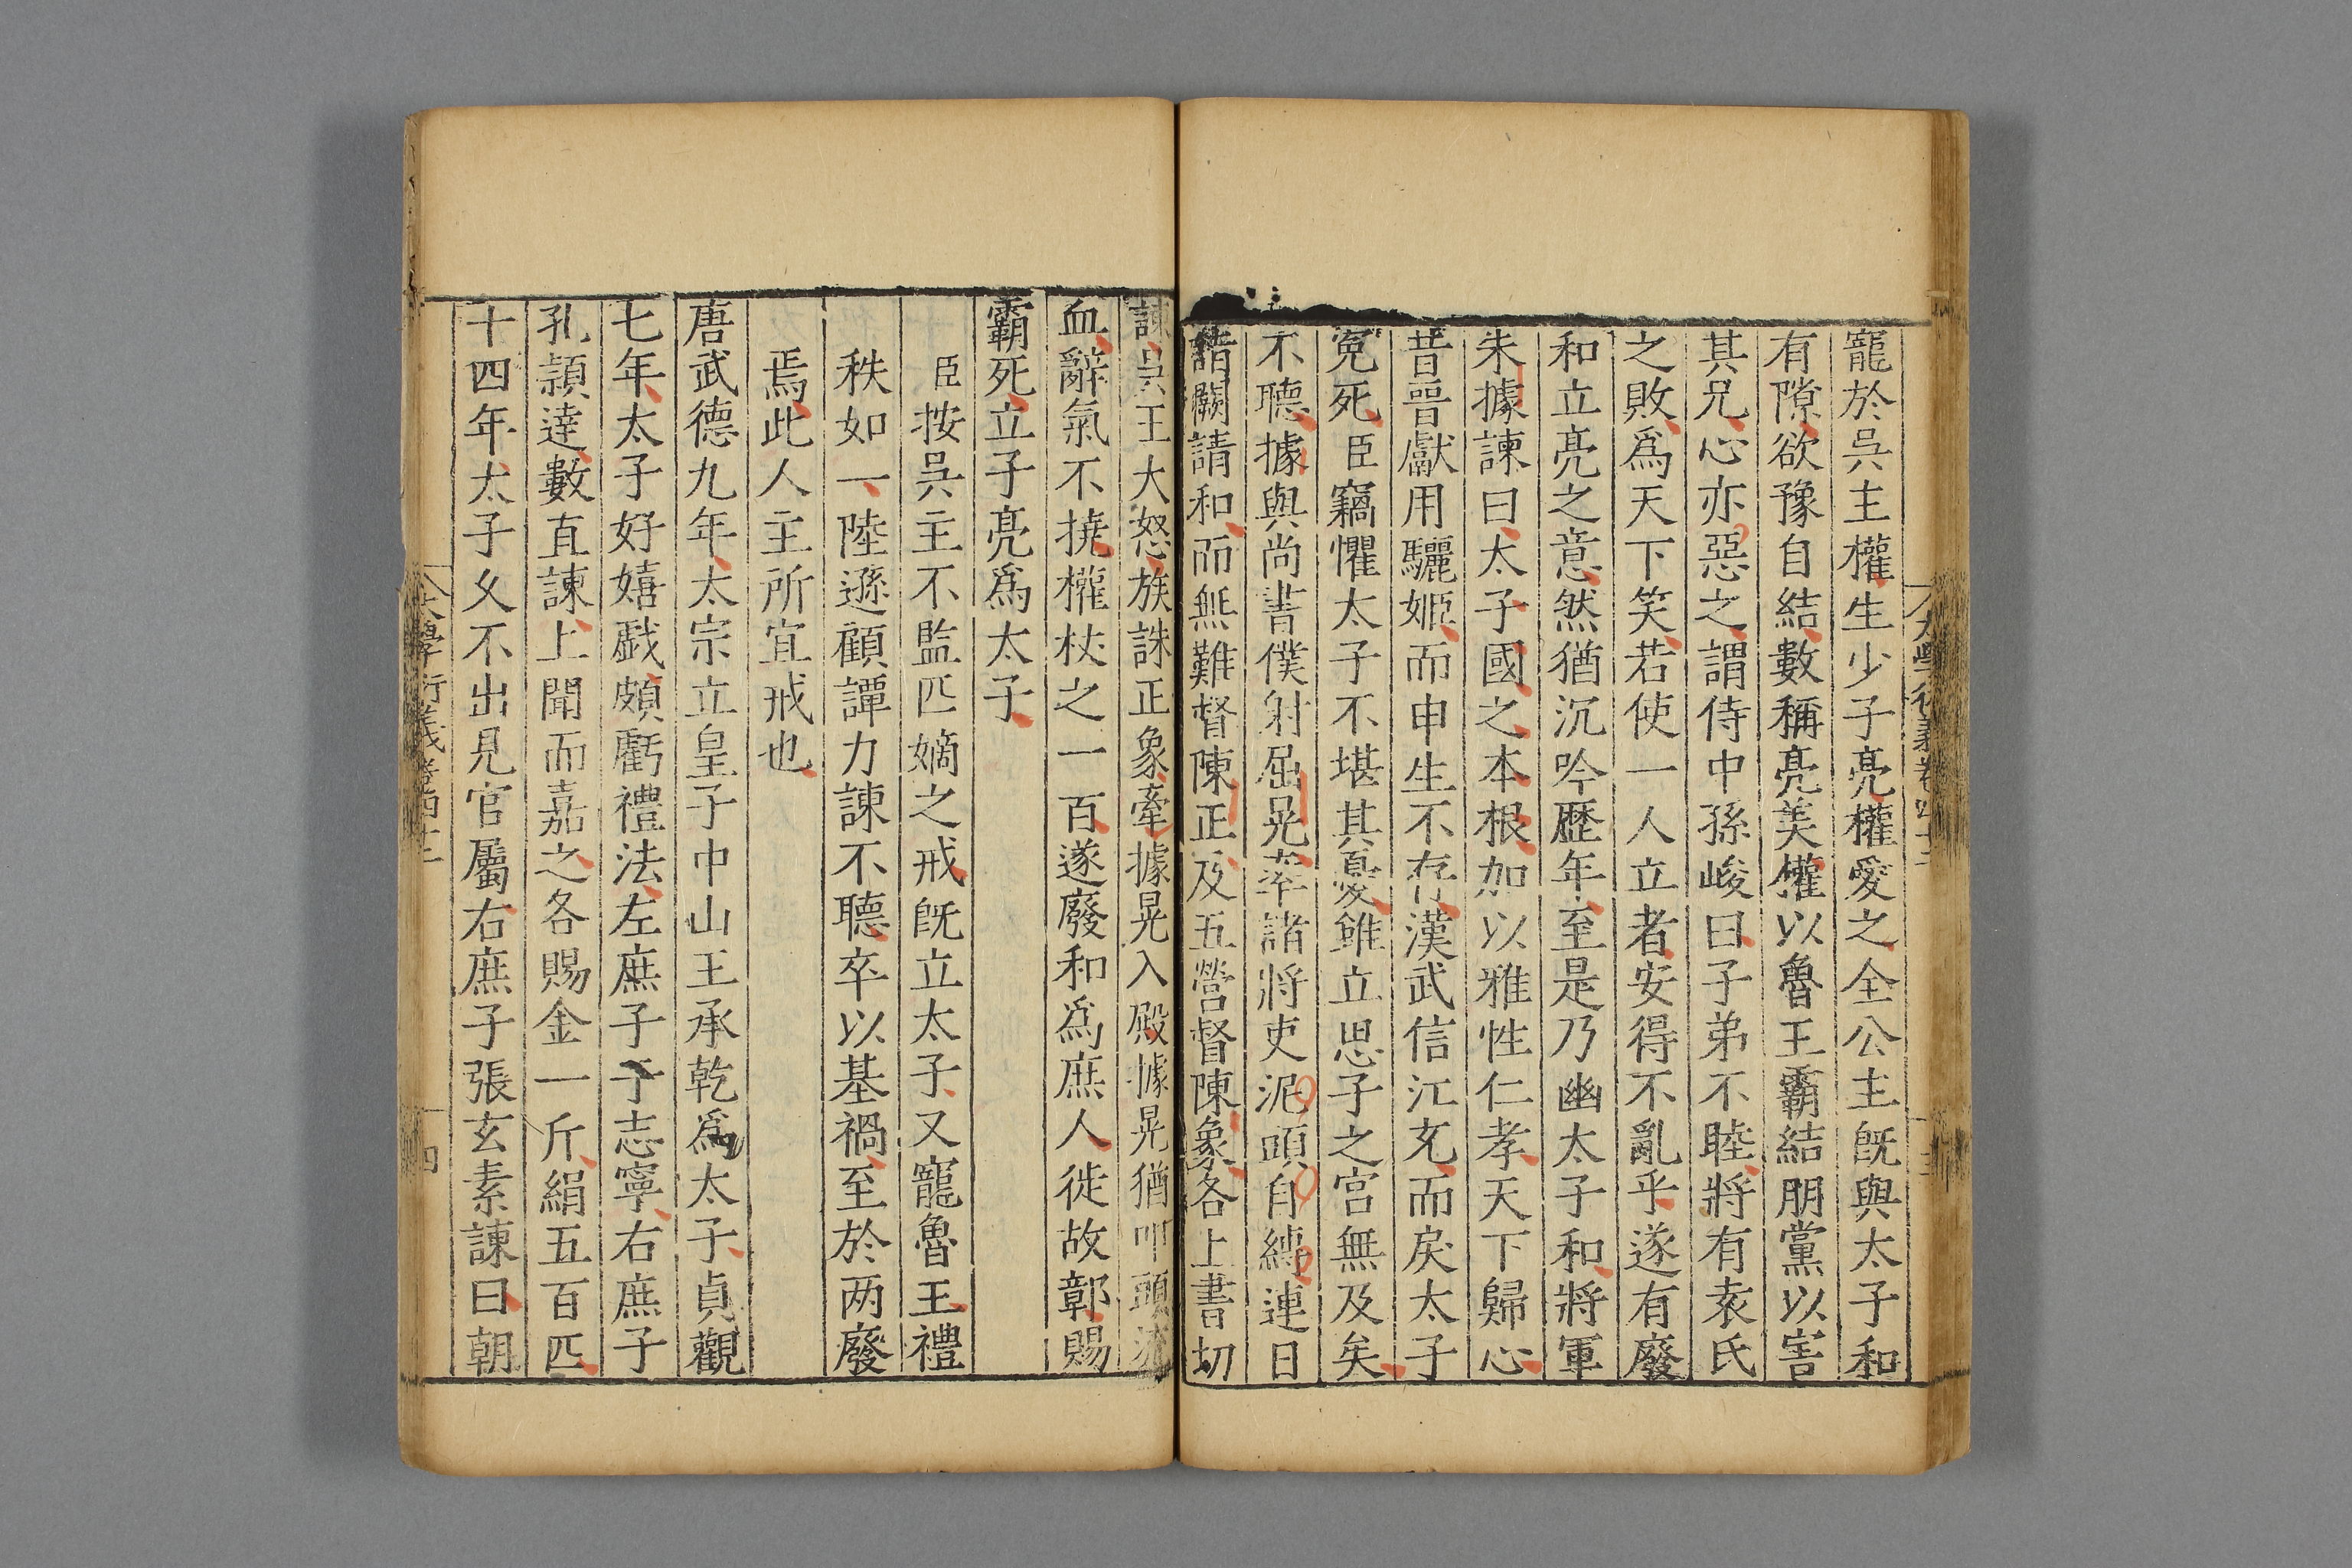 寵於吳主權生少子亮權愛之全公主旣與太子和
有隙欲豫自結數稱亮美權以魯王霸結朋黨以害
其兄心亦惡之謂侍中孫峻曰子弟不睦將有袁氏
之敗爲天下笑若使一人立者安得不亂乎遂有廢
和立亮之意然猶沉吟歷年至是乃幽太子和將軍
朱據諫曰太子國之本根加以雅性仁孝天下歸心
昔晋獻用驪姬而申生不存漢武信江充而戾太子
冤死臣竊懼太子不堪其憂雖立思子之宮無及矣
不聽據與尚書僕射屈晃率諸將吏泥頭自縛連日
詣闕請和而無難督陳正及五營督陳象各上書切
諫吳王大怒族誅正象牽據晃入殿據晃猶叩頭流
血辭氣不撓權杖之一百遂廢和爲庶人徙故鄣賜
霸死立子亮爲太子
臣按吳主不監匹嫡之戒旣立太子又寵魯王禮
秩如一陸遜顧譚力諫不聽卒以基禍至於两廢
焉此人主所宜戒也
唐武德九年太宗立皇子中山王承乾爲太子貞觀
七年太子好嬉戱頗虧禮法左庶子于志寧右庶子
孔頴達數直諫上聞而嘉之各賜金一斤絹五百匹
十四年太子乆不出見官屬右庶子張玄素諫曰朝
大學衍義卷四十二
四